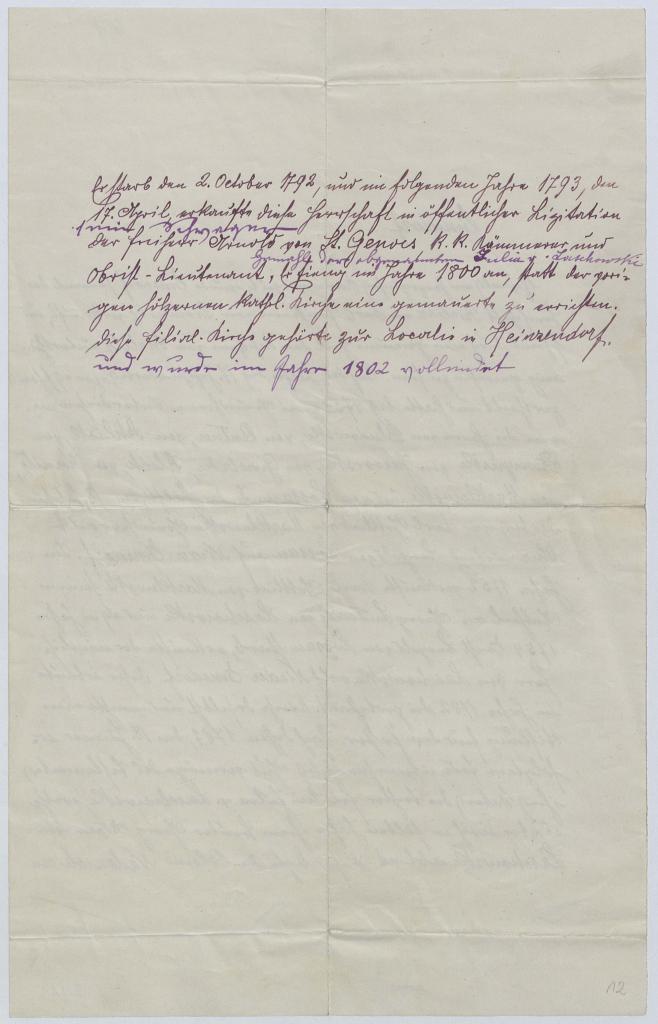 Er starb den 2. October 1792, und im folgenden Jahre 1793, den
17. April, erkaufte diese Herrschaft in öffentlicher Lizitation
sein Schwager
der Freiherr Arnold von St. Genois k. k. Kämmerer und
Gemahl der obgenannten Julia v. Laschowski
Obrist-Lieutenant, Er fieng im Jahre 1800 an, statt der vori-
gen hölzernen kathl. Kirche eine gemauerte zu errichten.
diese Filial-Kirche gehörte zur Localie in Heinzendorf.
und wurde im Jahre 1802 vollendet
12